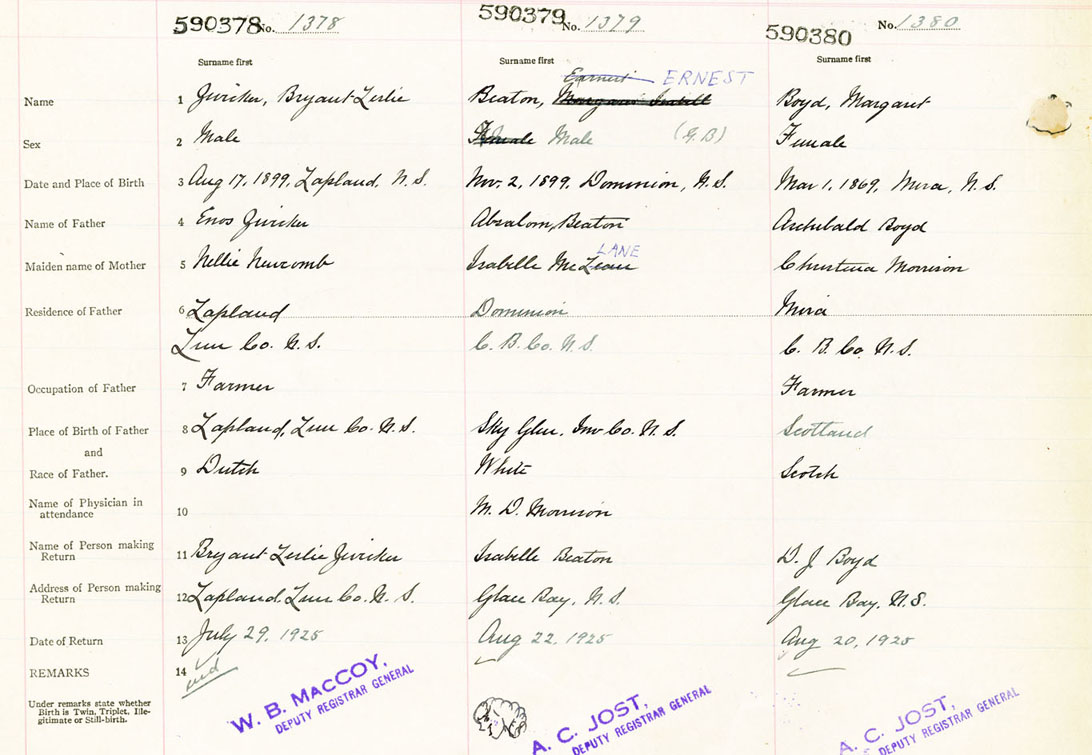 590378 No. 1378
590379 No. 1379
590380 No. 1380
Surname first
Surname first
Surname first
Earnest ERNEST
Name 1 Bryant Leslie
Beaton,
Boyd, Margaret
Sex 2 Male
Female Male (G.B)
Female
Date and Place of Birth 3 Aug 17, 1899, Lapland, N.S.
Nov. 2, 1899, Dominion, N.S.
Mar 1, 1869, Mira, N.S.
Name of Father 4 Enos
Absalom, Beaton
Archibald Boyd
LANE
Maiden name of Mother 5 Nellie Newcomb
Isabelle McLean
Christena Morrison
Residence of Father 6 Lapland
Dominion
Mira
Lun Co. N.S.
C. B. Co. N.S.
C. B. Co. N.S.
Occupation of Father 7 Farmer
Farmer
Place of Birth of Father 8 Lapland, Lun Co. N.S.
Sky Glen, Inv Co. N.S.
Scotland
and
Race of Father. 9 Dutch
White
Scotch
Name of Physician in
attendance 10
M. D. Morrison
Name of Person making
Return 11 Bryant Leslie
Isabelle Beaton
D. J Boyd
Address of Person making
Return 12 Lapland, Lun Co. N.S.
Glace Bay, N.S.
Glace Bay, N.S.
Date of Return 13 July 29, 1925
Aug 22, 1925
Aug 20, 1925
REMARKS 14
Under remarks state whether
Birth is Twin, Triplet, Ille-
gitimate or Still-birth.
W. B. MacCOY,
DEPUTY REGISTRAR GENERAL
A. C. JOST,
DEPUTY REGISTRAR GENERAL
A. C. JOST,
DEPUTY REGISTRAR GENERAL